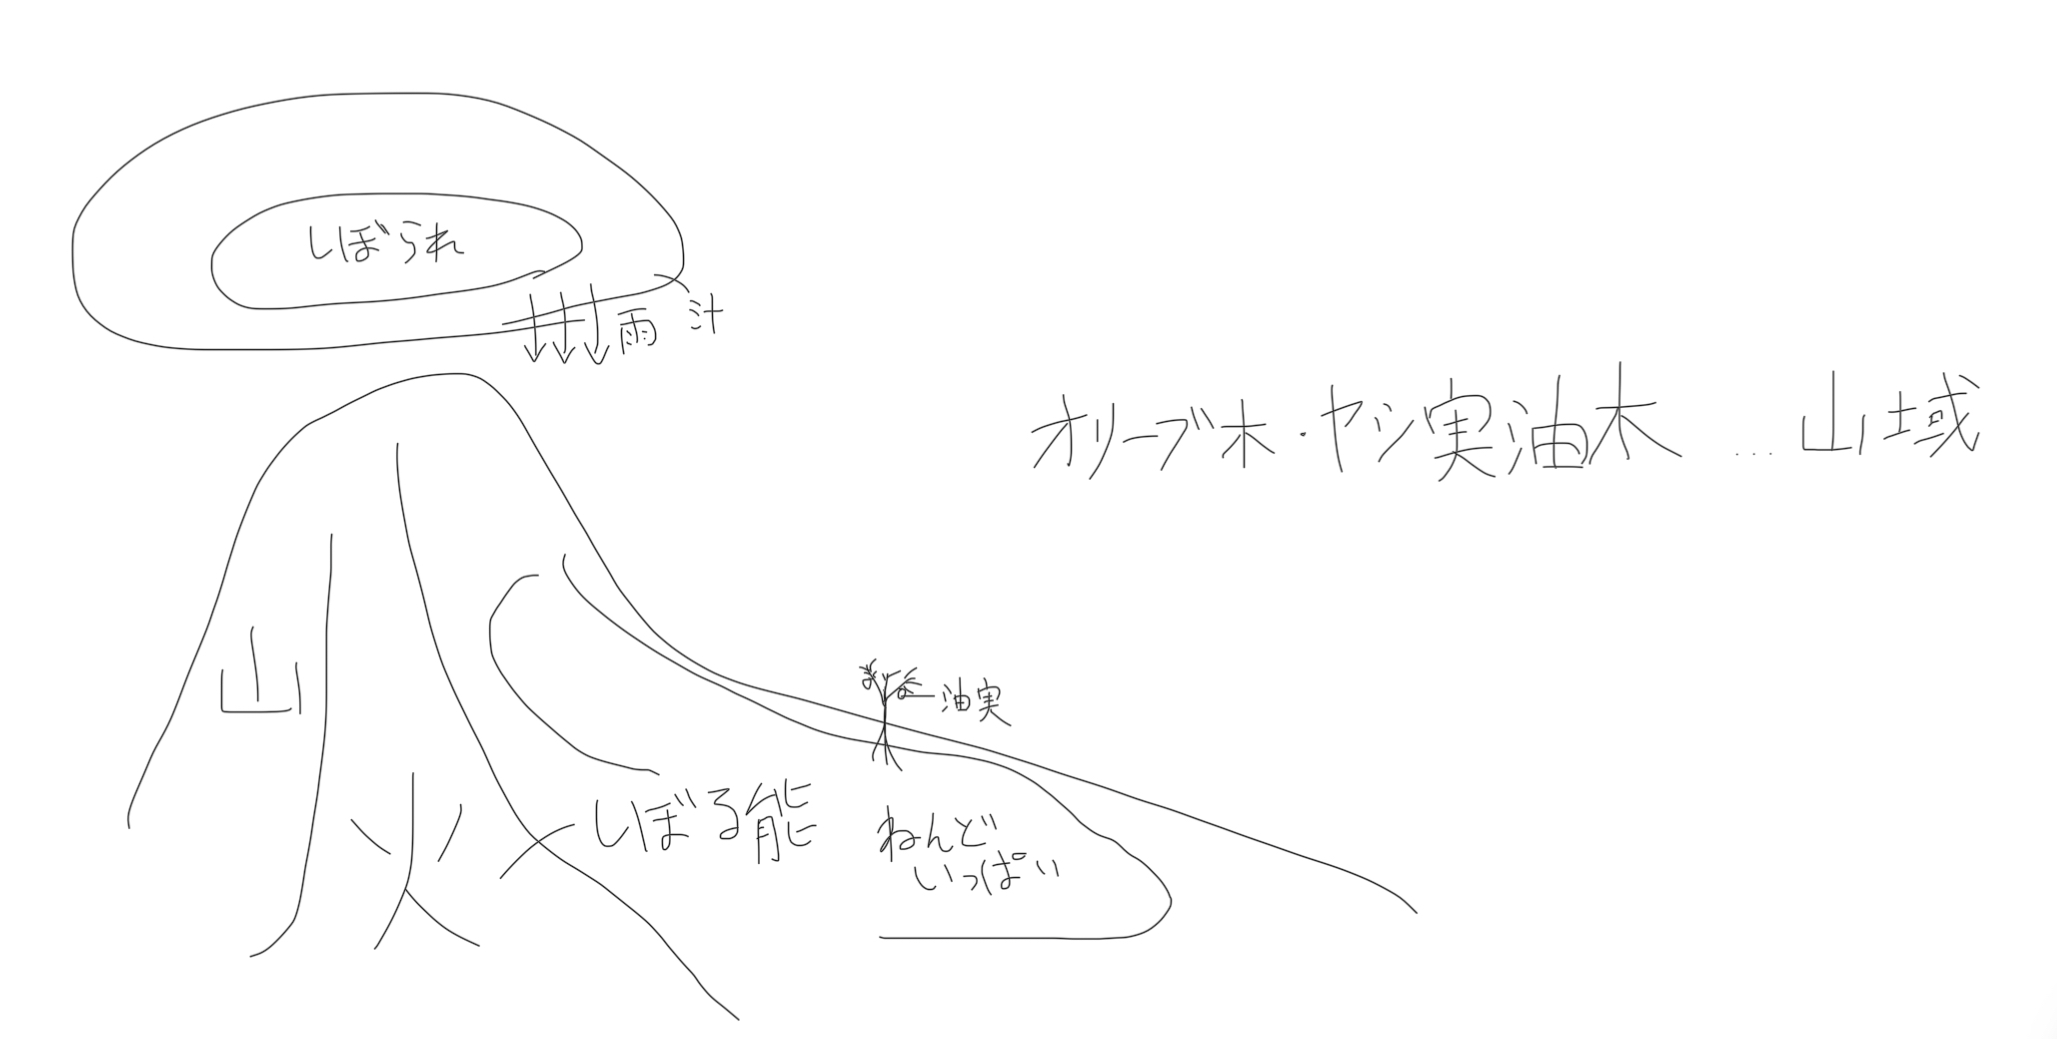 しぼられ
雨
汁
オリーブ木・ヤシ実油木 … 山域
山
油実
火
しぼる能
ねんど
いっぱい